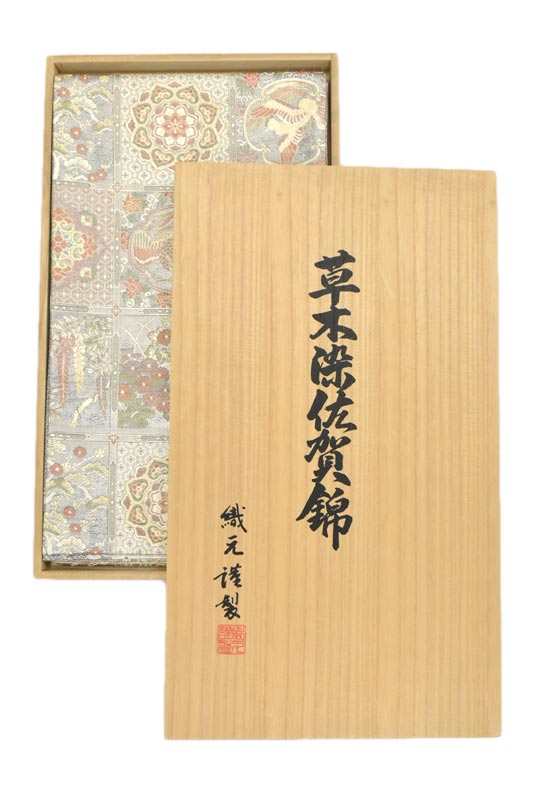 草木染佐賀錦
織元謹製